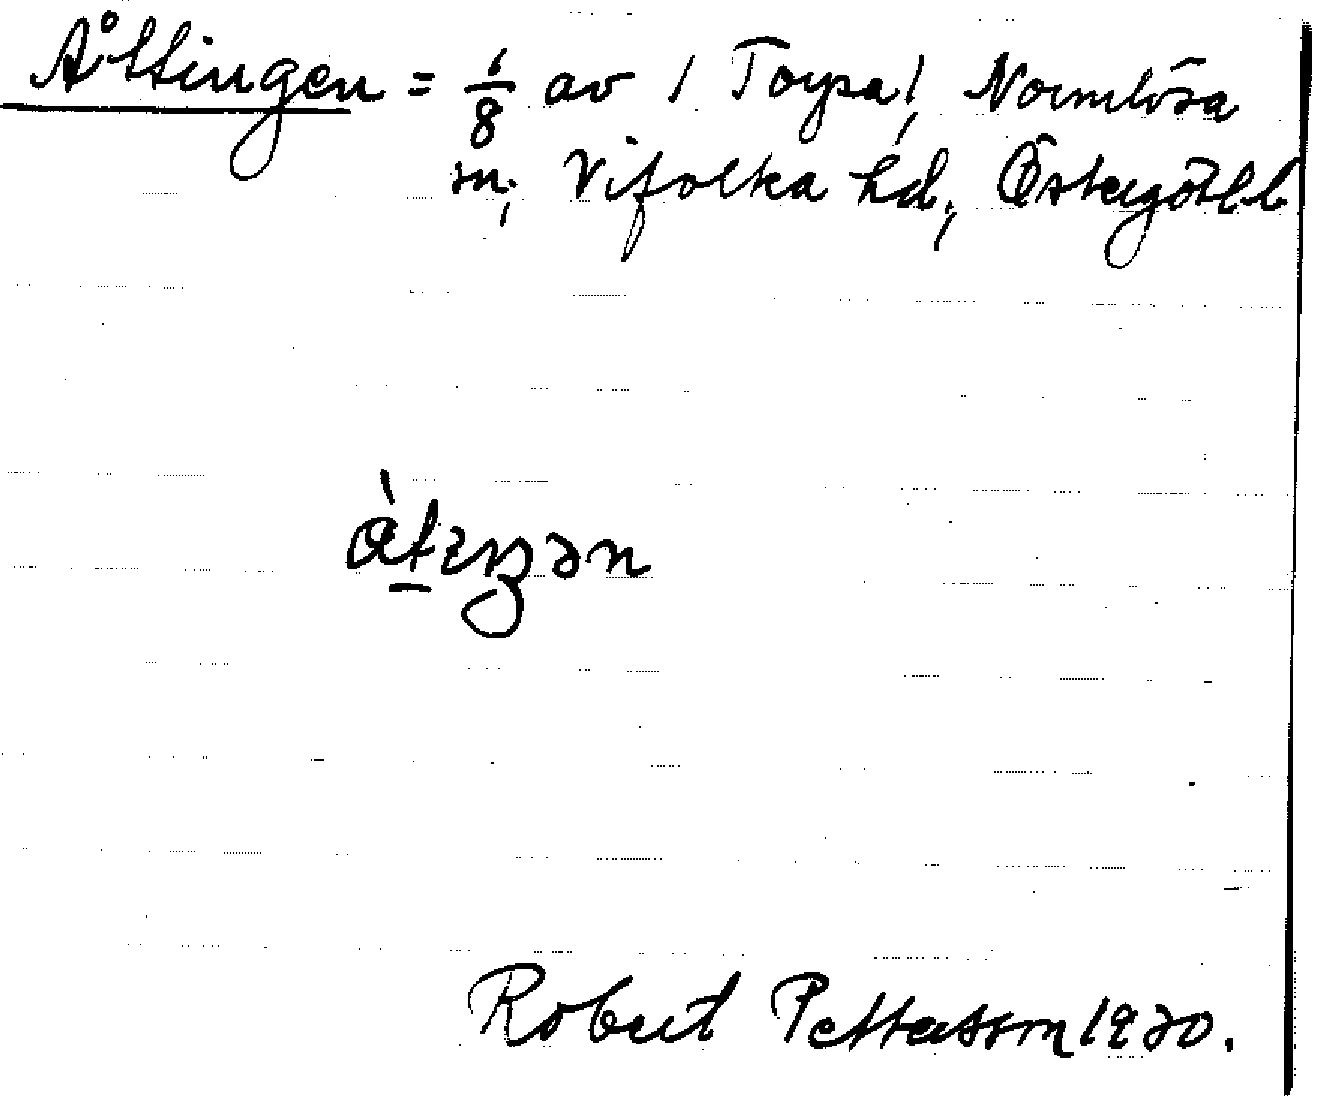 Åttingen = 1/8 av 1 Torpa, Normlösa
sn, Vifolka hd, Östergötl
Robert Pettersson 1930.